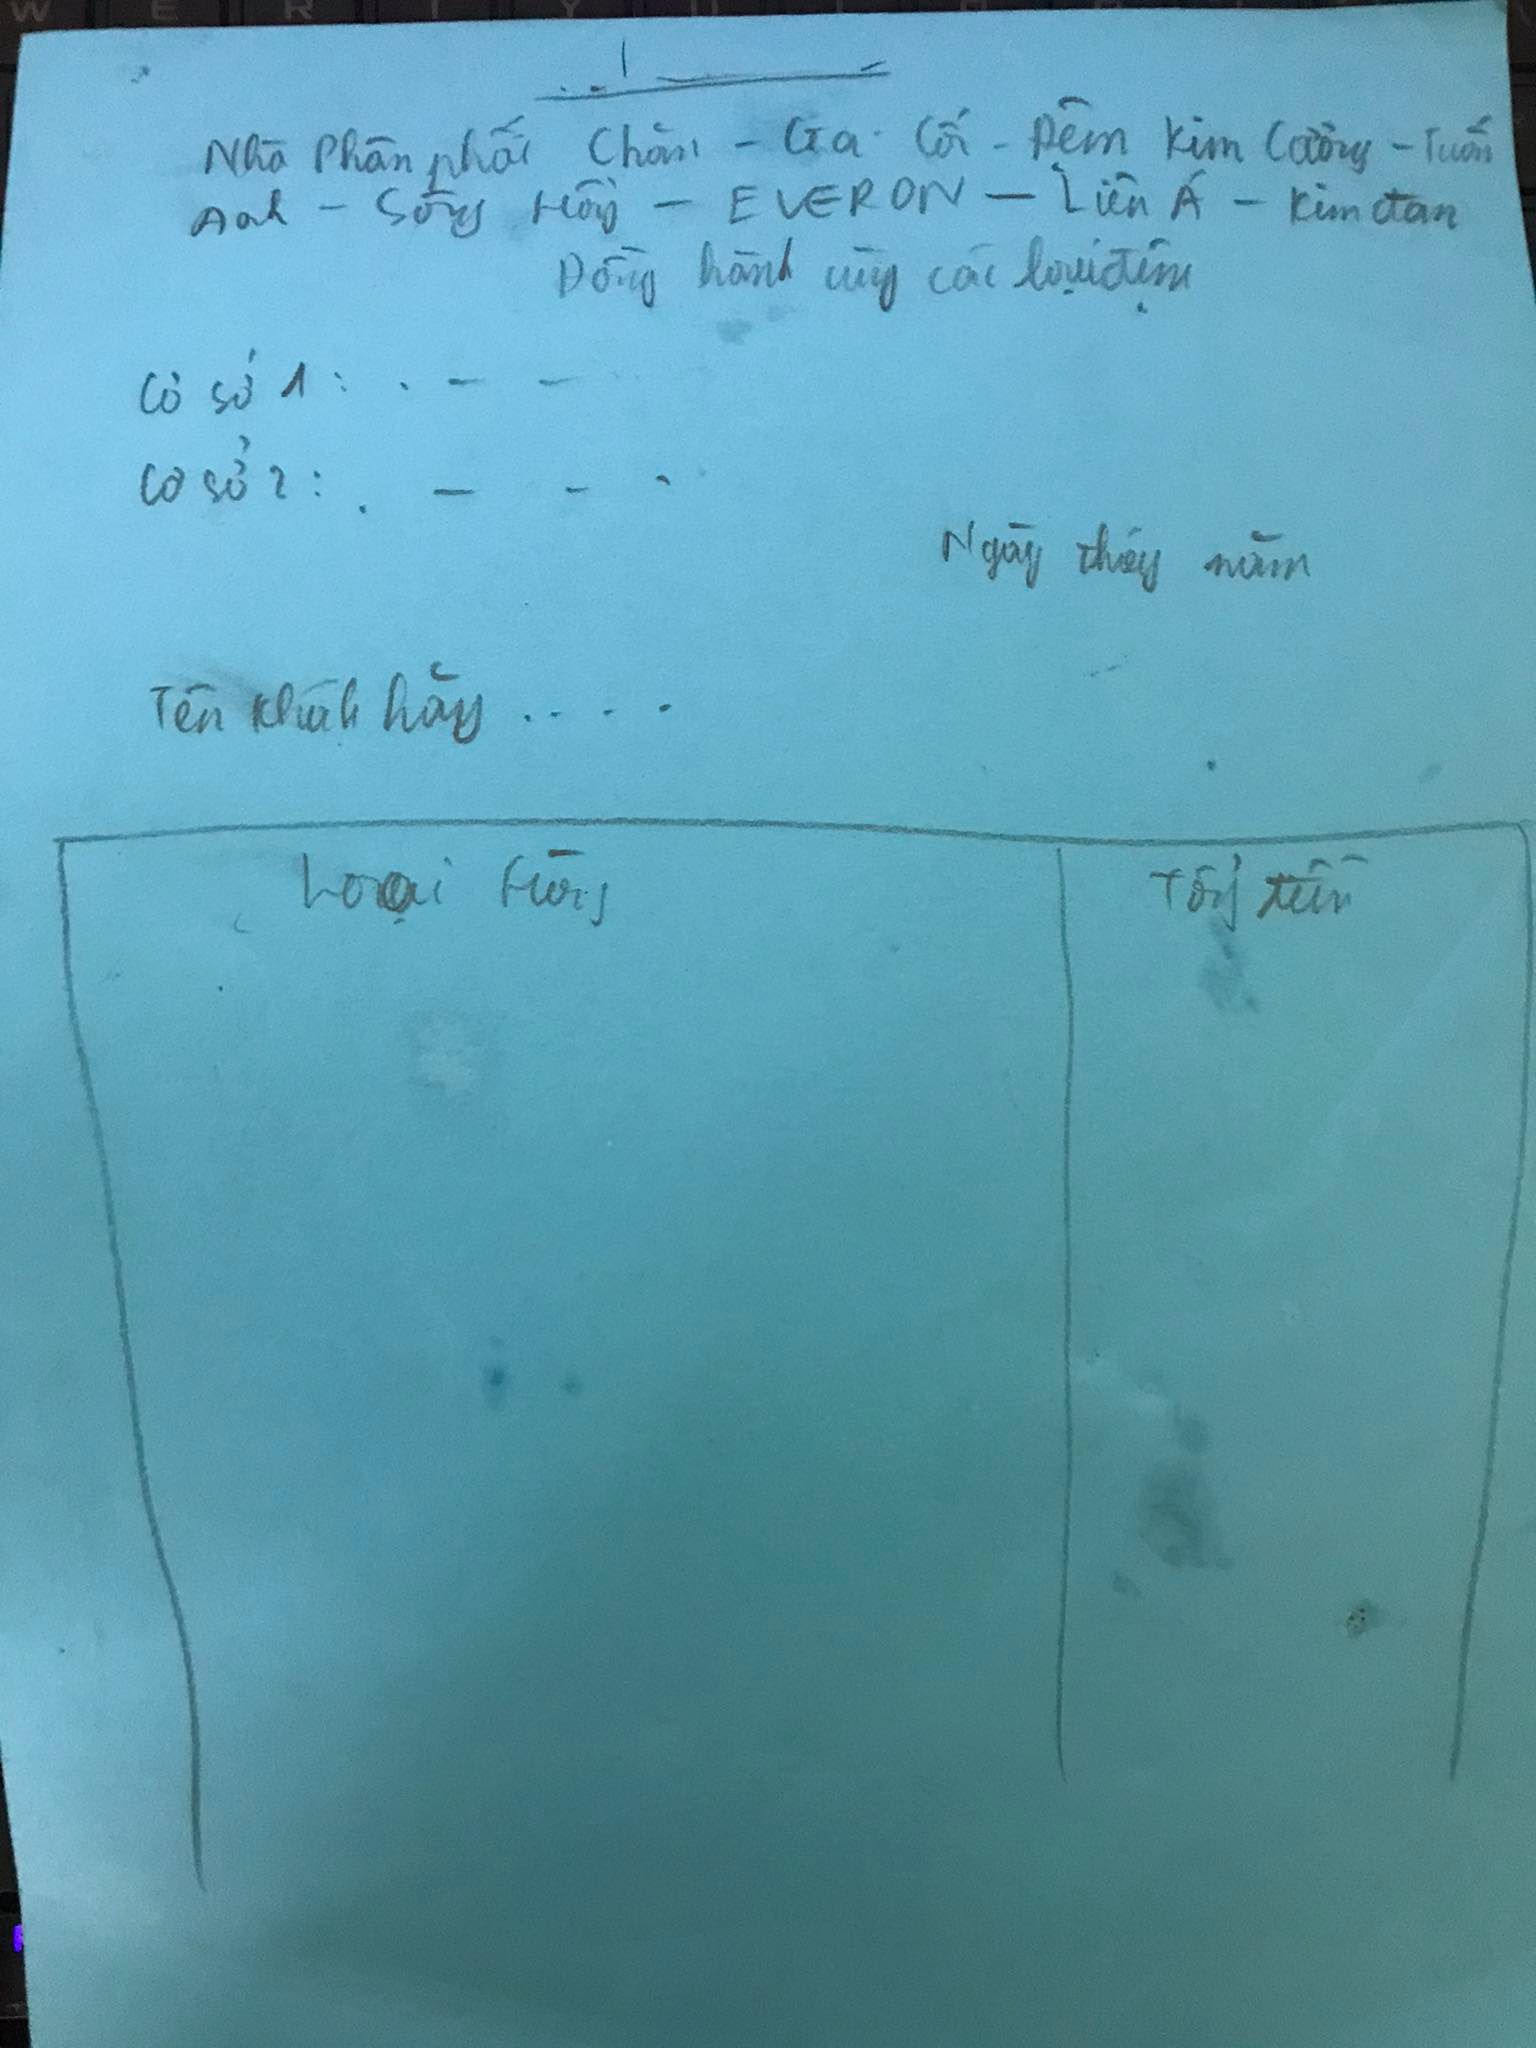 Nhà Phân phối Chăn - Ga - Gối - Đệm Kim Cương - Tuấn
Anh - Sông Hồng - EVERON - Liên Á - Kimdan
Đồng hành cùng các loại đệm
Cơ sở 1: . - -
Cơ sở 2: . - - -
Ngày tháng năm
Tên khách hàng . . . . .
Loại Hàng
Tổng tiền